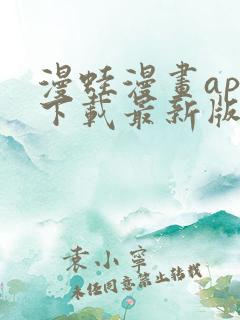 漫蛙漫畫ap
下載最新版
袁小寧
未任同意禁止转载